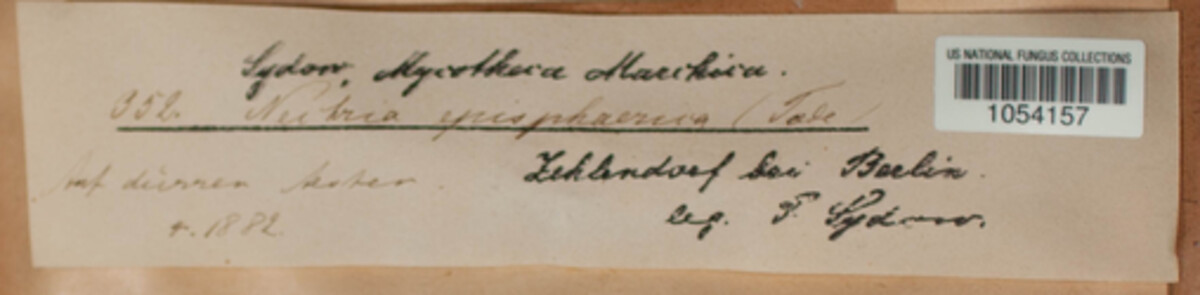 Sydow, Mycotheca Marchica.
352. Nectria episphaerica (Tode)
Auf dürren
Zehlendorf bei Berlin.
1882.
leg. P. Sydow.
US NATIONAL FUNGUS COLLECTIONS
1054157